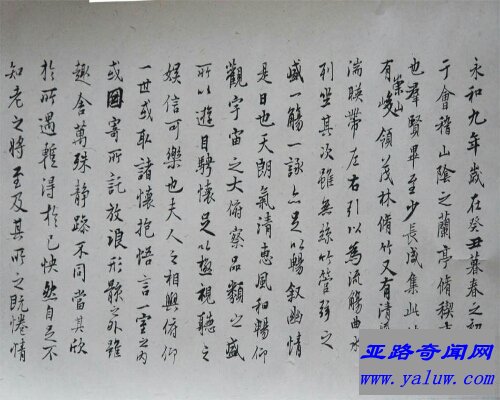 永和九年歲在癸丑暮春之初
于會稽山陰之蘭亭脩稧
也羣賢畢至少長咸集此
有崇山峻領茂林脩竹又有清流
湍暎帶左右引以為流觴曲水
列坐其次雖無絲竹管弦之
盛一觴一詠亦足以暢敘幽情
是日也天朗氣清惠風和暢仰
觀宇宙之大俯察品類之盛
所以遊目騁懷足以極視聽之
娛信可樂也夫人之相與俯仰
一世或取諸懷抱悟言一室之內
或因寄所託放浪形骸之外雖
趣舍萬殊靜躁不同當其欣
於所遇暫得於己快然自足不
知老之將至及其所之既惓情
亚路奇闻网
www.yaluw.com